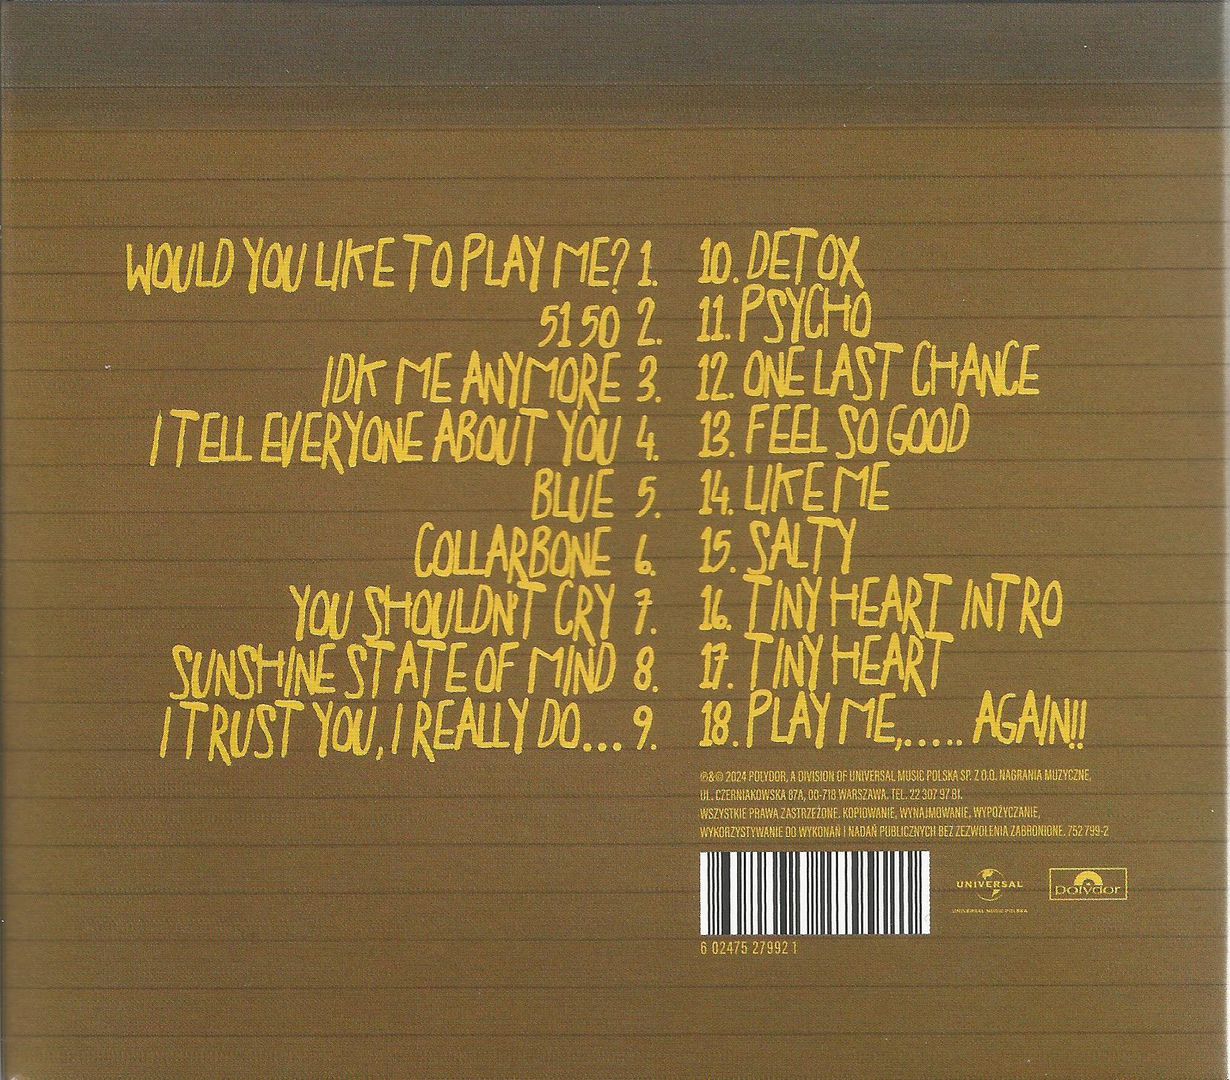 WOULD YOU LIKE TO PLAY ME? 1.
5150 2.
IDK ME ANYMORE 3.
I TELL EVERYONE ABOUT YOU 4.
BLUE 5.
COLLARBONE 6.
YOU SHOULDN'T CRY 7.
SUNSHINE STATE OF MIND 8.
I TRUST YOU, I REALLY DO... 9.
10. DETOX
11. PSYCHO
12. ONE LAST CHANCE
13. FEEL SO GOOD
14. LIKE ME
15. SALTY
16. TINY HEART INTRO
17. TINY HEART
18. PLAY ME,..... AGAIN!!
℗&© 2024 POLYDOR, A DIVISION OF UNIVERSAL MUSIC POLSKA SP. Z O.O. NAGRANIA MUZYCZNE,
UL. CZERNIAKOWSKA 87A, 00-718 WARSZAWA. TEL. 22 307 97 81.
WSZYSTKIE PRAWA ZASTRZEŻONE. KOPIOWANIE, WYNAJMOWANIE, WYPOŻYCZANIE,
WYKORZYSTYWANIE DO WYKONAŃ I NADAŃ PUBLICZNYCH BEZ ZEZWOLENIA ZABRONIONE. 752 799-2
UNIVERSAL
UNIVERSAL MUSIC POLSKA
polydor
6 02475 27992 1